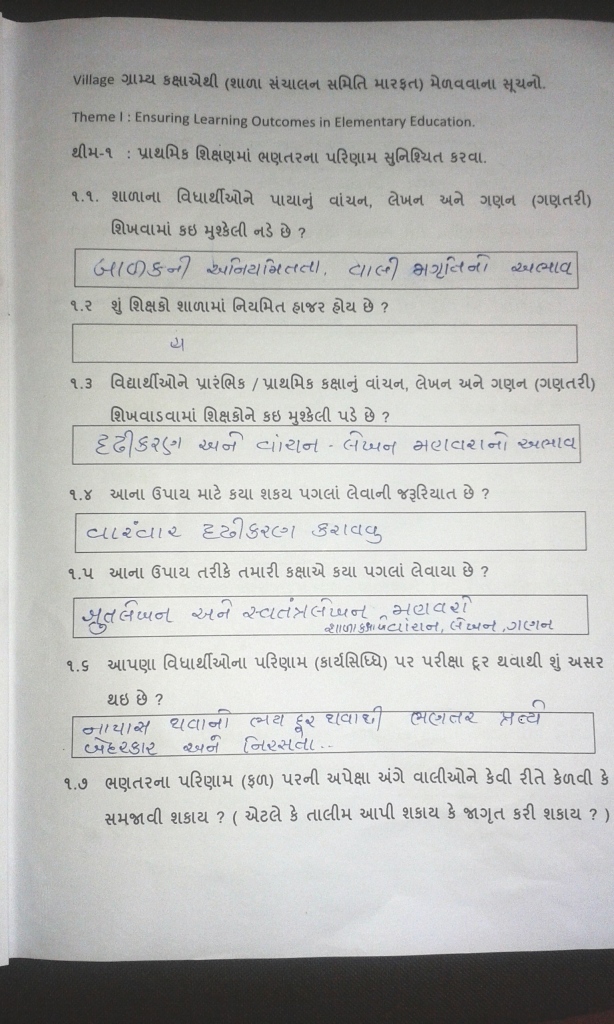 Village ગ્રામ્ય કક્ષાએથી (શાળા સંચાલન સમિતિ મારફત) મેળવવાના સૂચનો.
Theme I : Ensuring Learning Outcomes in Elementary Education.
થીમ-૧ : પ્રાથમિક શિક્ષણમાં ભણતરના પરિણામ સુનિશ્ચિત કરવા.
૧.૧. શાળાના વિધાર્થીઓને પાયાનું વાંચન, લેખન અને ગણન (ગણતરી)
શિખવામાં કઇ મુશ્કેલી નડે છે ?
બાળકની અનિયમિતતા, વાલી જાગૃતિનો અભાવ
૧.૨ શું શિક્ષકો શાળામાં નિયમિત હાજર હોય છે ?
૧.૩ વિદ્યાર્થીઓને પ્રારંભિક / પ્રાથમિક કક્ષાનું વાંચન, લેખન અને ગણન (ગણતરી)
શિખવાડવામાં શિક્ષકોને કઇ મુશ્કેલી પડે છે ?
દ્દઢીકરણ અને વાંચન - લેખન મહાવરાનો અભાવ
૧.૪ આના ઉપાય માટે કયા શકય પગલાં લેવાની જરૂરિયાત છે ?
વારંવાર દ્દઢીકરણ કરાવવુ
૧.૫ આના ઉપાય તરીકે તમારી કક્ષાએ કયા પગલાં લેવાયા છે ?
શ્રુતલેખન અને સ્વતંત્રલેખન મહાવરો
શાળાકક્ષાએ વાંચન, લેખન, ગણન
૧.૬ આપણા વિધાર્થીઓના પરિણામ (કાર્યસિધ્ધિ) પર પરીક્ષા દૂર થવાથી શું અસર
થઇ છે ?
નાપાસ થવાનો ભય દૂર થવાથી ભણતર પ્રત્યે
બેદરકાર અને નિરસતા...
૧.૭ ભણતરના પરિણામ (ફળ) પરની અપેક્ષા અંગે વાલીઓને કેવી રીતે કેળવી કે
સમજાવી શકાય ? ( એટલે કે તાલીમ આપી શકાય કે જાગૃત કરી શકાય ? )